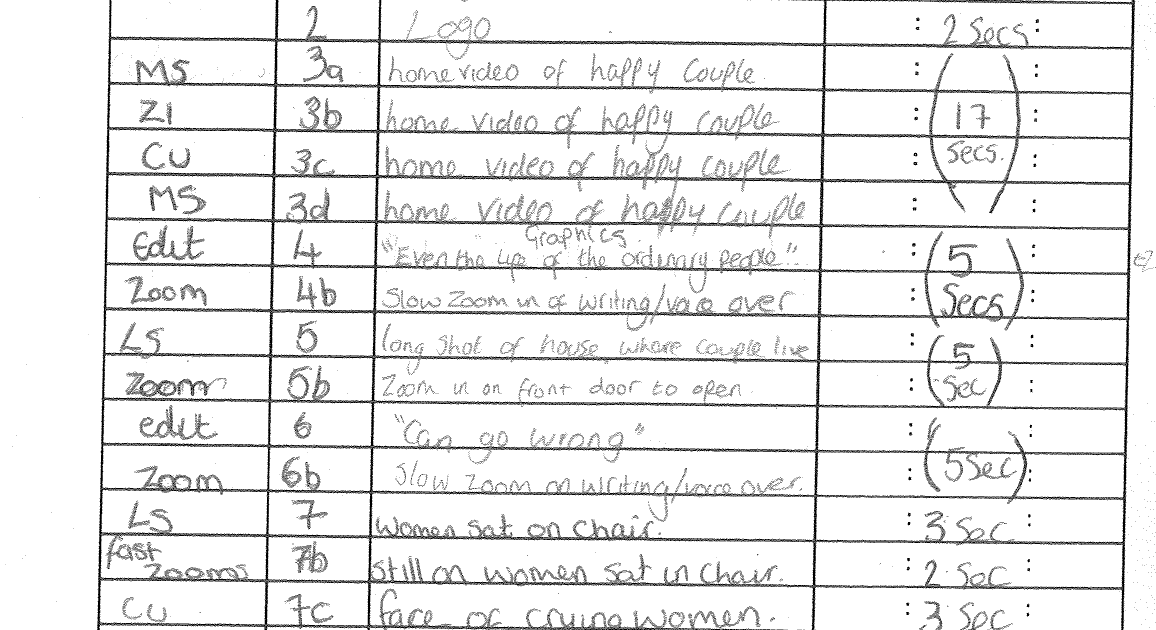 2 Logo : 2 Secs :
MS 3a home video of happy couple : :
ZI 3b home video of happy couple : 17 :
CU 3c home video of happy couple : Secs. :
MS 3d home video of happy couple : :
Graphics
Edit 4 "Even the life of the ordinary people" : (5 :
Zoom 4b Slow Zoom in of writing/voice over : Secs) :
LS 5 long shot of house where couple live : (5 :
Zoom 5b Zoom in on front door to open : Sec) :
edit 6 "Can go wrong" : :
Zoom 6b Slow Zoom on writing/voice over. : (5 Sec) :
LS 7 Women sat on chair. : 3 Sec :
fast
Zooms 7b still on women sat in chair. : 2 Sec :
CU 7c face of crying women. : 3 Sec :